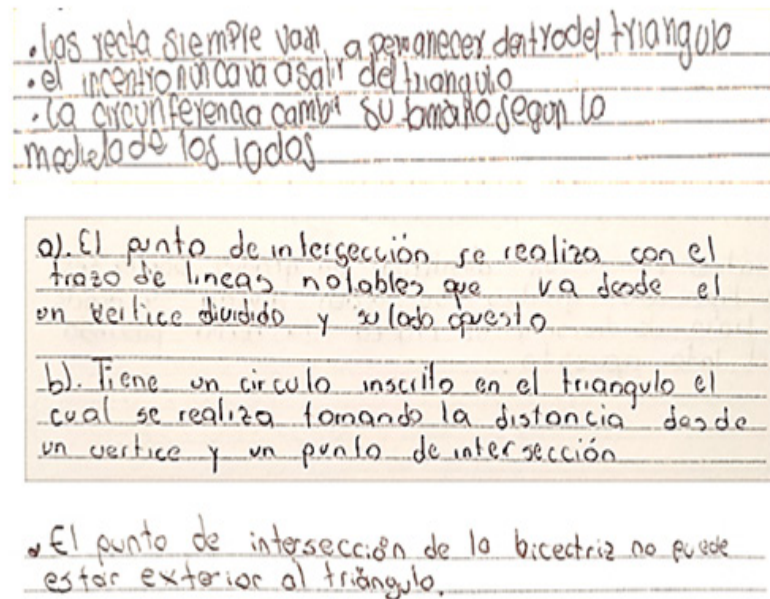 . las recta siempre van a permanecer dentro del triangulo
. el incentro nunca va a salir del triangulo
. la circunferencia cambia su tamaño segun la
medida de los lados
a). El punto de intersección se realiza con el
trazo de lineas notables que va desde el
un vertice dividido y su lado opuesto
b). Tiene un circulo inscrito en el triangulo el
cual se realiza tomando la distancia desde
un vertice y un punto de intersección
. El punto de intersección de la bicectriz no puede
estar exterior al triángulo.